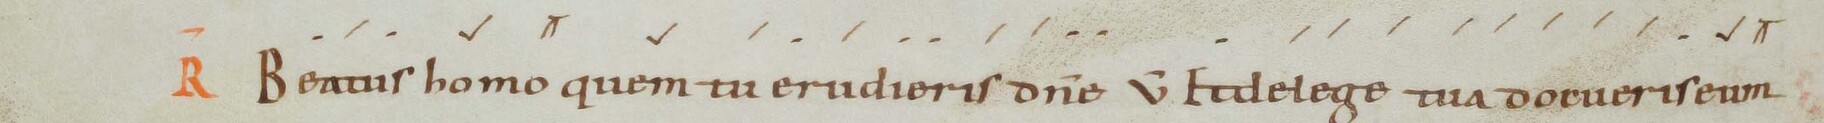 R̄ Beatus homo quem tu erudieris dn̄e v̄ Et de lege tua docueris eum